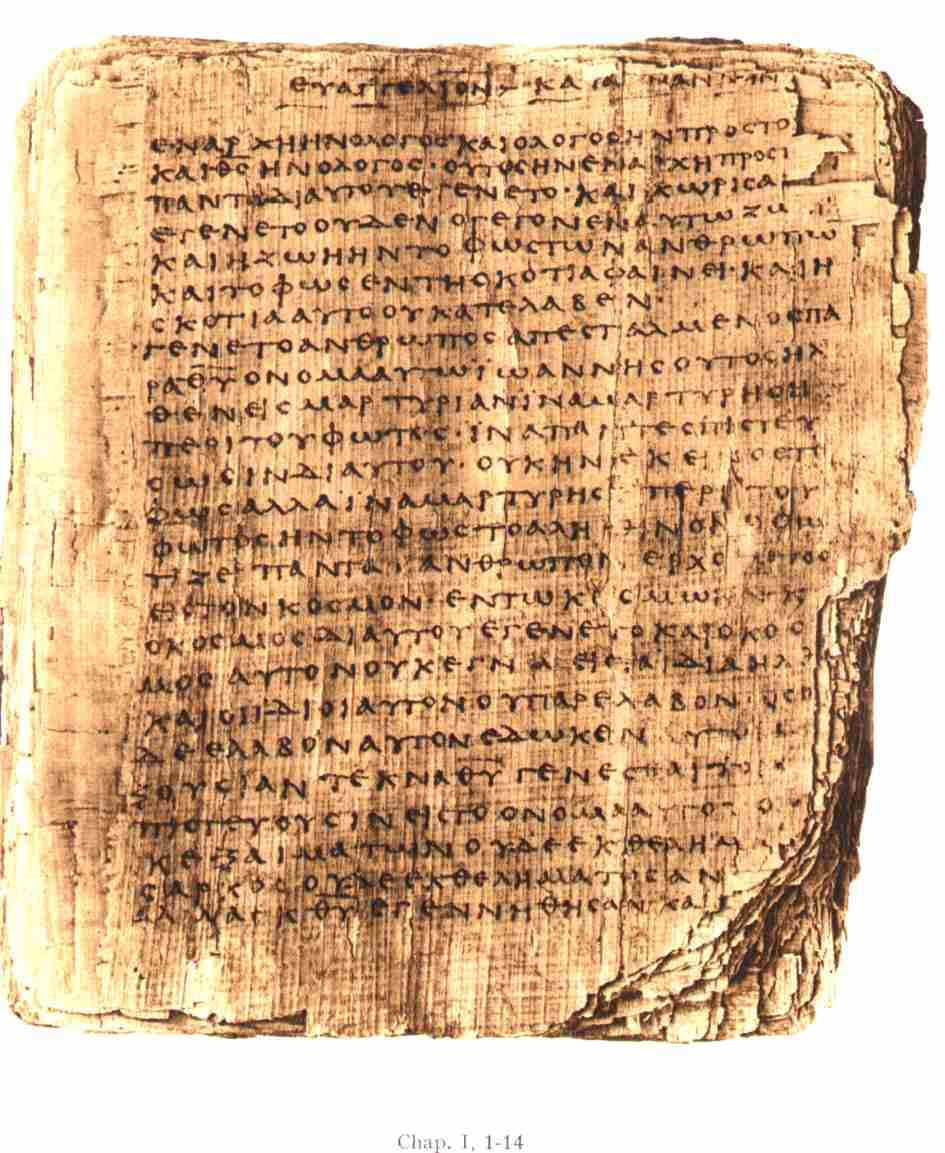 ΕΥΑΓΓΕΛΙΟΝ ΚΑΤΑ ΙΩΑΝΝΗΝ
ΕΝΑΡΧΗΗΝΟΛΟΓΟΣΚΑΙΟΛΟΓΟΣΗΝΠΡΟΣΤΟ
ΚΑΙΘΣΗΝΟΛΟΓΟΣ·ΟΥΤΟΣΗΝΕΝΑΡΧΗΠΡΟΣΤ
ΠΑΝΤΑΔΙΑΥΤΟΥΕΓΕΝΕΤΟ·ΚΑΙΧΩΡΙΣΑ
ΕΓΕΝΕΤΟΟΥΔΕΝΟΓΕΓΟΝΕΝΕΝΑΥΤΩΖΩ
ΚΑΙΗΖΩΗΗΝΤΟΦΩΣΤΩΝΑΝΘΡΩΠΩ
ΚΑΙΤΟΦΩΣΕΝΤΗΣΚΟΤΙΑΦΑΙΝΕΙ·ΚΑΙΗ
ΣΚΟΤΙΑΑΥΤΟΟΥΚΑΤΕΛΑΒΕΝ·
ΓΕΝΕΤΟΑΝΘΡΩΠΟΣΑΠΕΣΤΑΛΜΕΝΟΣΠΑ
ΡΑΘΥΟΝΟΜΑΑΥΤΩΪΩΑΝΝΗΣΟΥΤΟΣΗΛ
ΘΕΝΕΙΣΜΑΡΤΥΡΙΑΝΪΝΑΜΑΡΤΥΡΗΣΗ
ΠΕΡΙΤΟΥΦΩΤΟΣ·ΪΝΑΠΑΝΤΕΣΠΙΣΤΕΥ
ΣΩΣΙΝΔΙΑΥΤΟΥ·ΟΥΚΗΝΕΚΕΙΝΟΣΤΟ
ΦΩΣΑΛΛΑΪΝΑΜΑΡΤΥΡΗΣΗΠΕΡΙΤΟΥ
ΦΩΤΟΣΗΝΤΟΦΩΣΤΟΑΛΗΘΗΝΟΝΟΦΩ
ΤΙΖΕΙΠΑΝΤΑΑΝΘΡΩΠΟΝΕΡΧΟΜΕΝΟΝ
ΕΙΣΤΟΝΚΟΣΜΟΝ·ΕΝΤΩΚΟΣΜΩΗΝΚ
ΟΚΟΣΜΟΣΔΙΑΥΤΟΥΕΓΕΝΕΤΟΚΑΙΟΚΟΣ
ΜΟΣΑΥΤΟΝΟΥΚΕΓΝΩΕΙΣΤΑΙΔΙΑΗΛΘ
ΚΑΙΟΙΪΔΙΟΙΑΥΤΟΝΟΥΠΑΡΕΛΑΒΟΝ·ΟΣΟ
ΔΕΕΛΑΒΟΝΑΥΤΟΝΕΔΩΚΕΝΑΥΤΟΙ
ΞΟΥΣΙΑΝΤΕΚΝΑΘΥΓΕΝΕΣΘΑΙΤΟΙ
ΠΙΣΤΕΥΟΥΣΙΝΕΙΣΤΟΟΝΟΜΑΑΥΤΟΥΟ
ΚΕΞΑΙΜΑΤΩΝΟΥΔΕΕΚΘΕΛΗΜ
ΣΑΡΚΟΣΟΥΔΕΕΚΘΕΛΗΜΑΤΟΣΑΝ
ΑΛΛΑΕΚΘΥΕΓΕΝΝΗΘΗΣΑΝΚΑΙ
Chap. I, 1-14